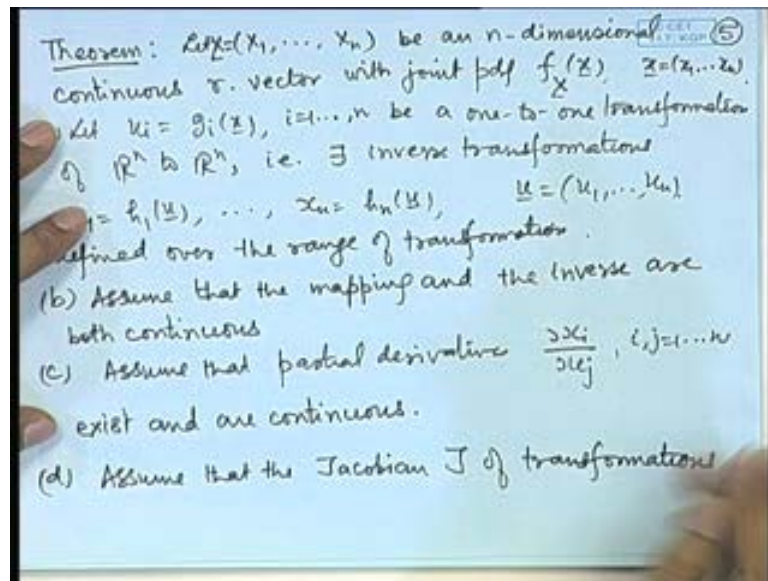 Theorem: Let X=(X₁,..., Xₙ) be an n-dimensional ⑤
continuous r. vector with joint pdf f_X(x). x=(x₁...xₙ).
Let uᵢ = gᵢ(x), i=1...,n be a one-to-one transformation
of ℝⁿ to ℝⁿ, i.e. ∃ inverse transformations
= h₁(u), ..., xₙ= hₙ(u), u=(u₁,...,uₙ)
defined over the range of transformation.
(b) Assume that the mapping and the inverse are
both continuous
(c) Assume that partial derivative ∂xᵢ/∂uⱼ, i,j=1...n
exist and are continuous.
(d) Assume that the Jacobian J of transformations